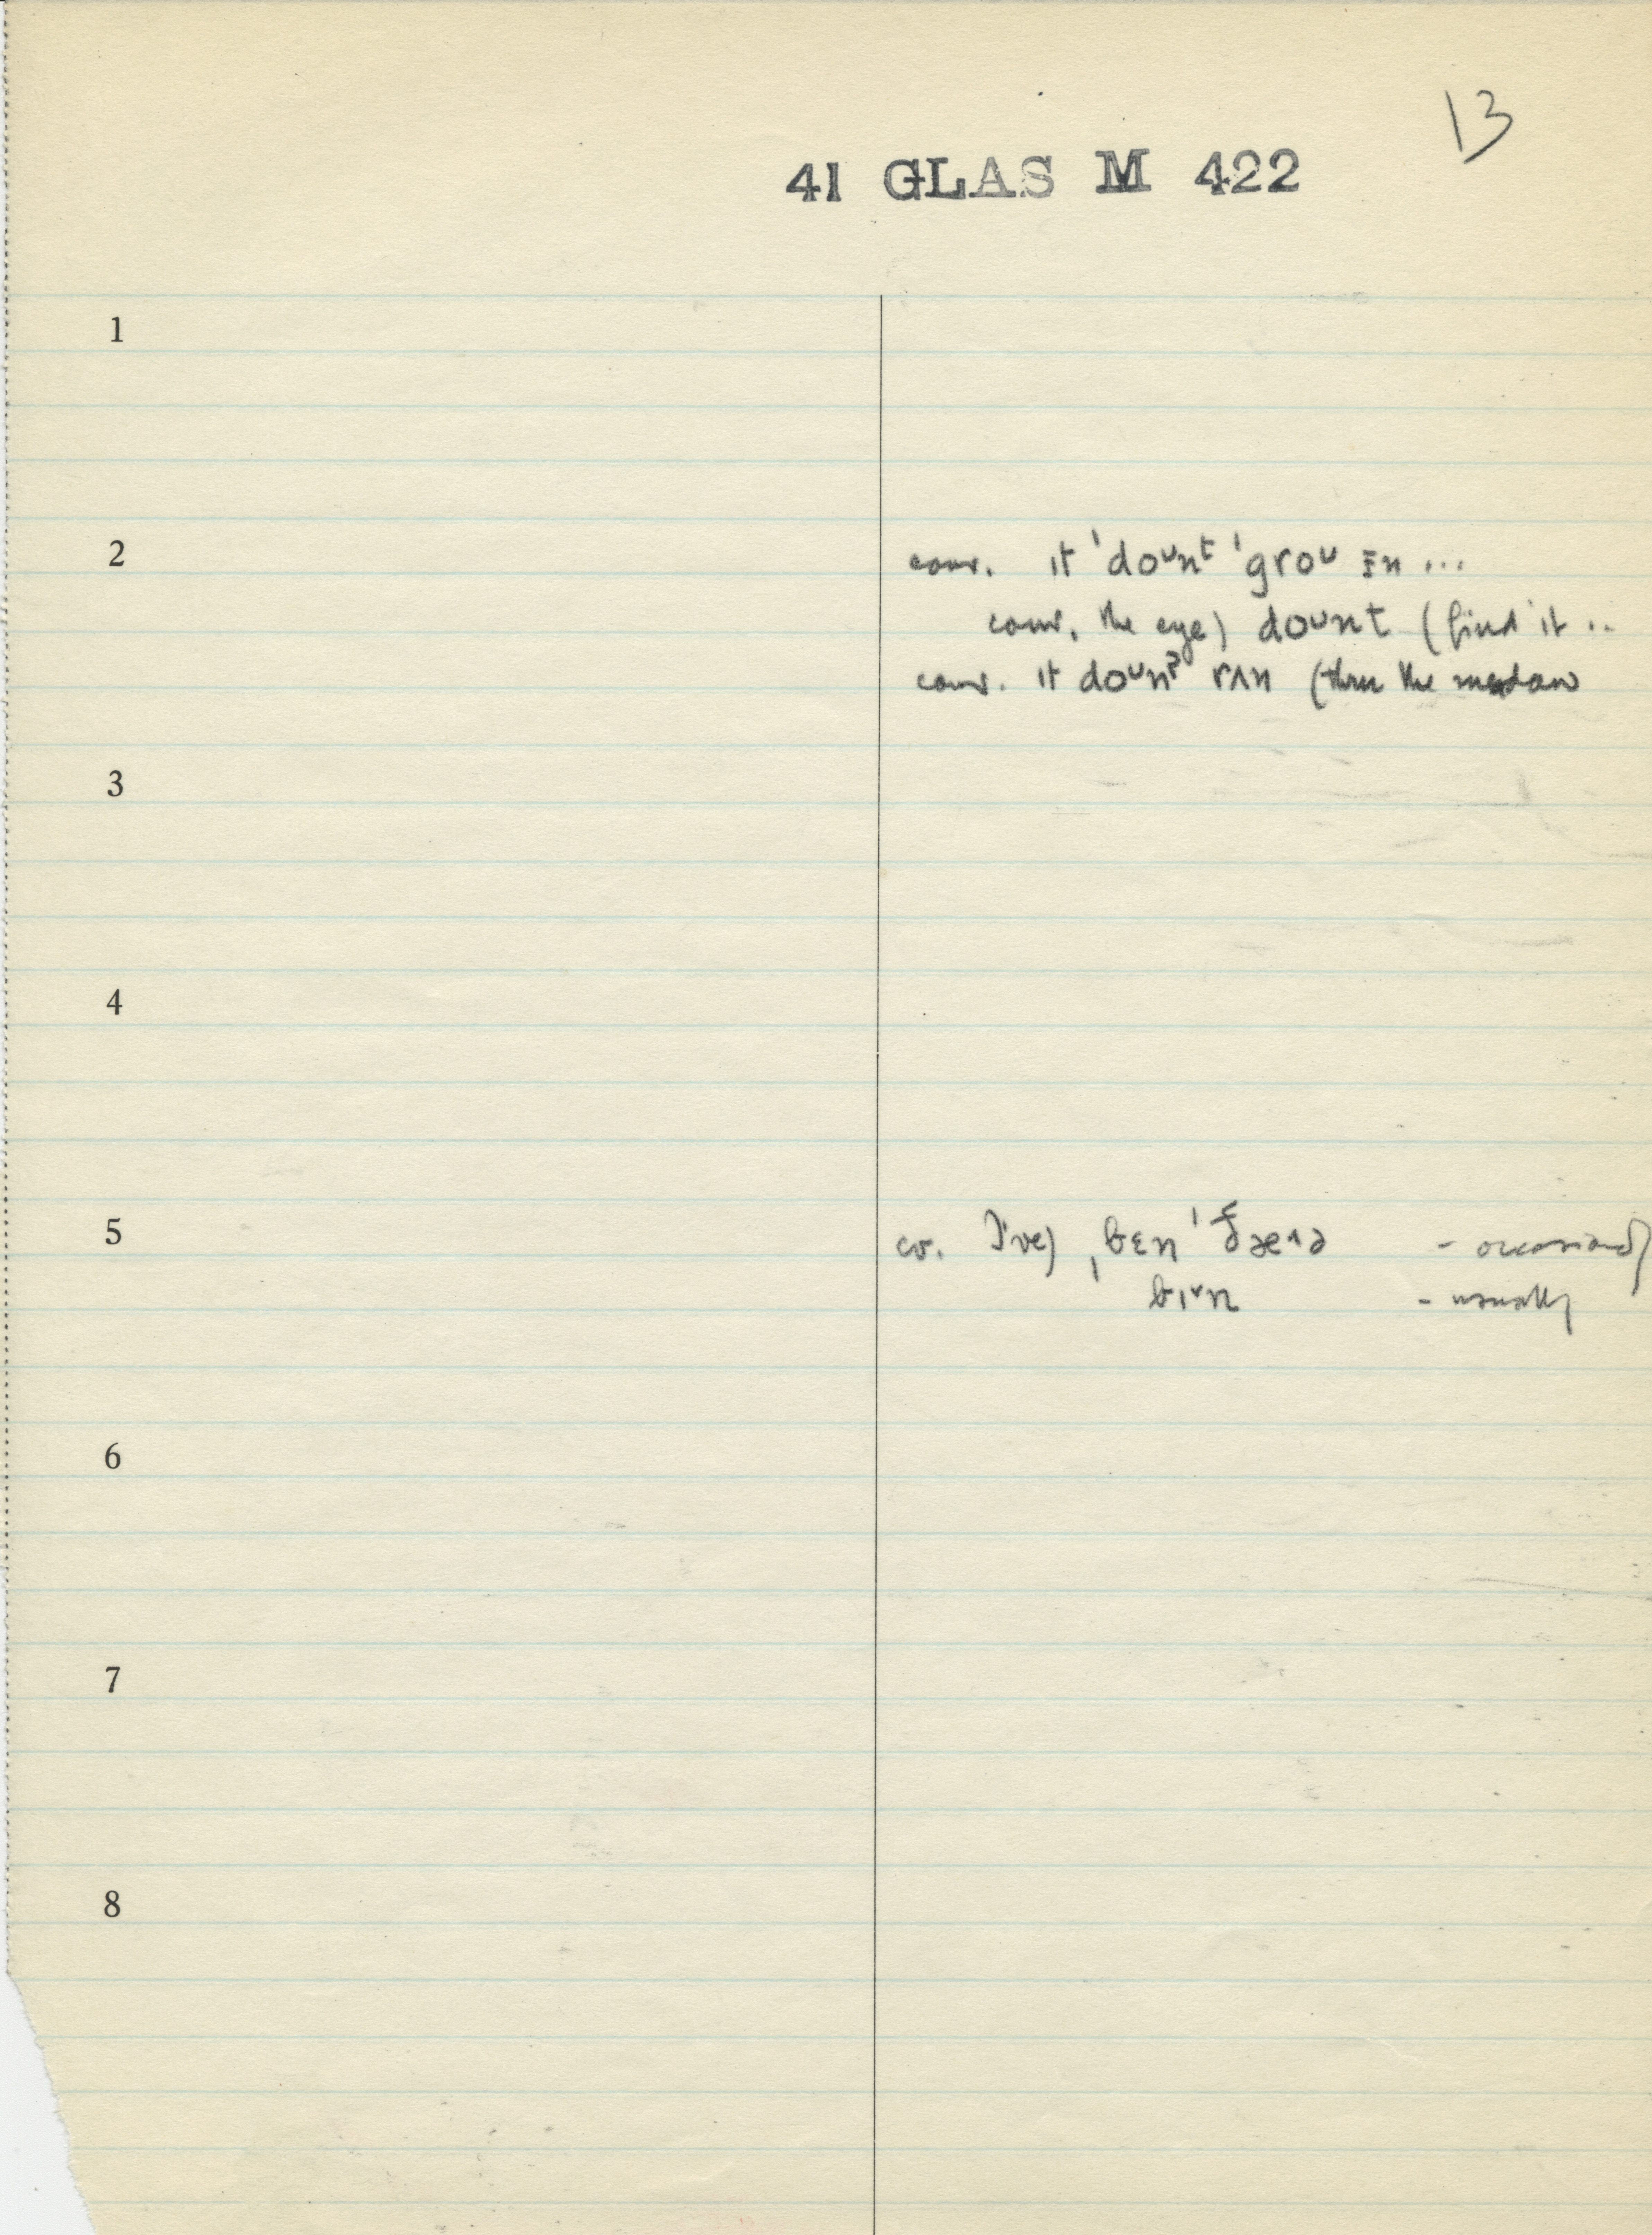 13
41 GLAS M 422
1
2 conv. ɪt ˈdoᴜnᵗ ˈgroᴜ ɪn ...
conv. the eye) doᴜnt (find it ..
conv. ɪt doᴜnˀ rʌn (thru the meadow
3
4
5 cv. I've) ˌbɛn - occasionally
bɪˇn - usually
6
7
8